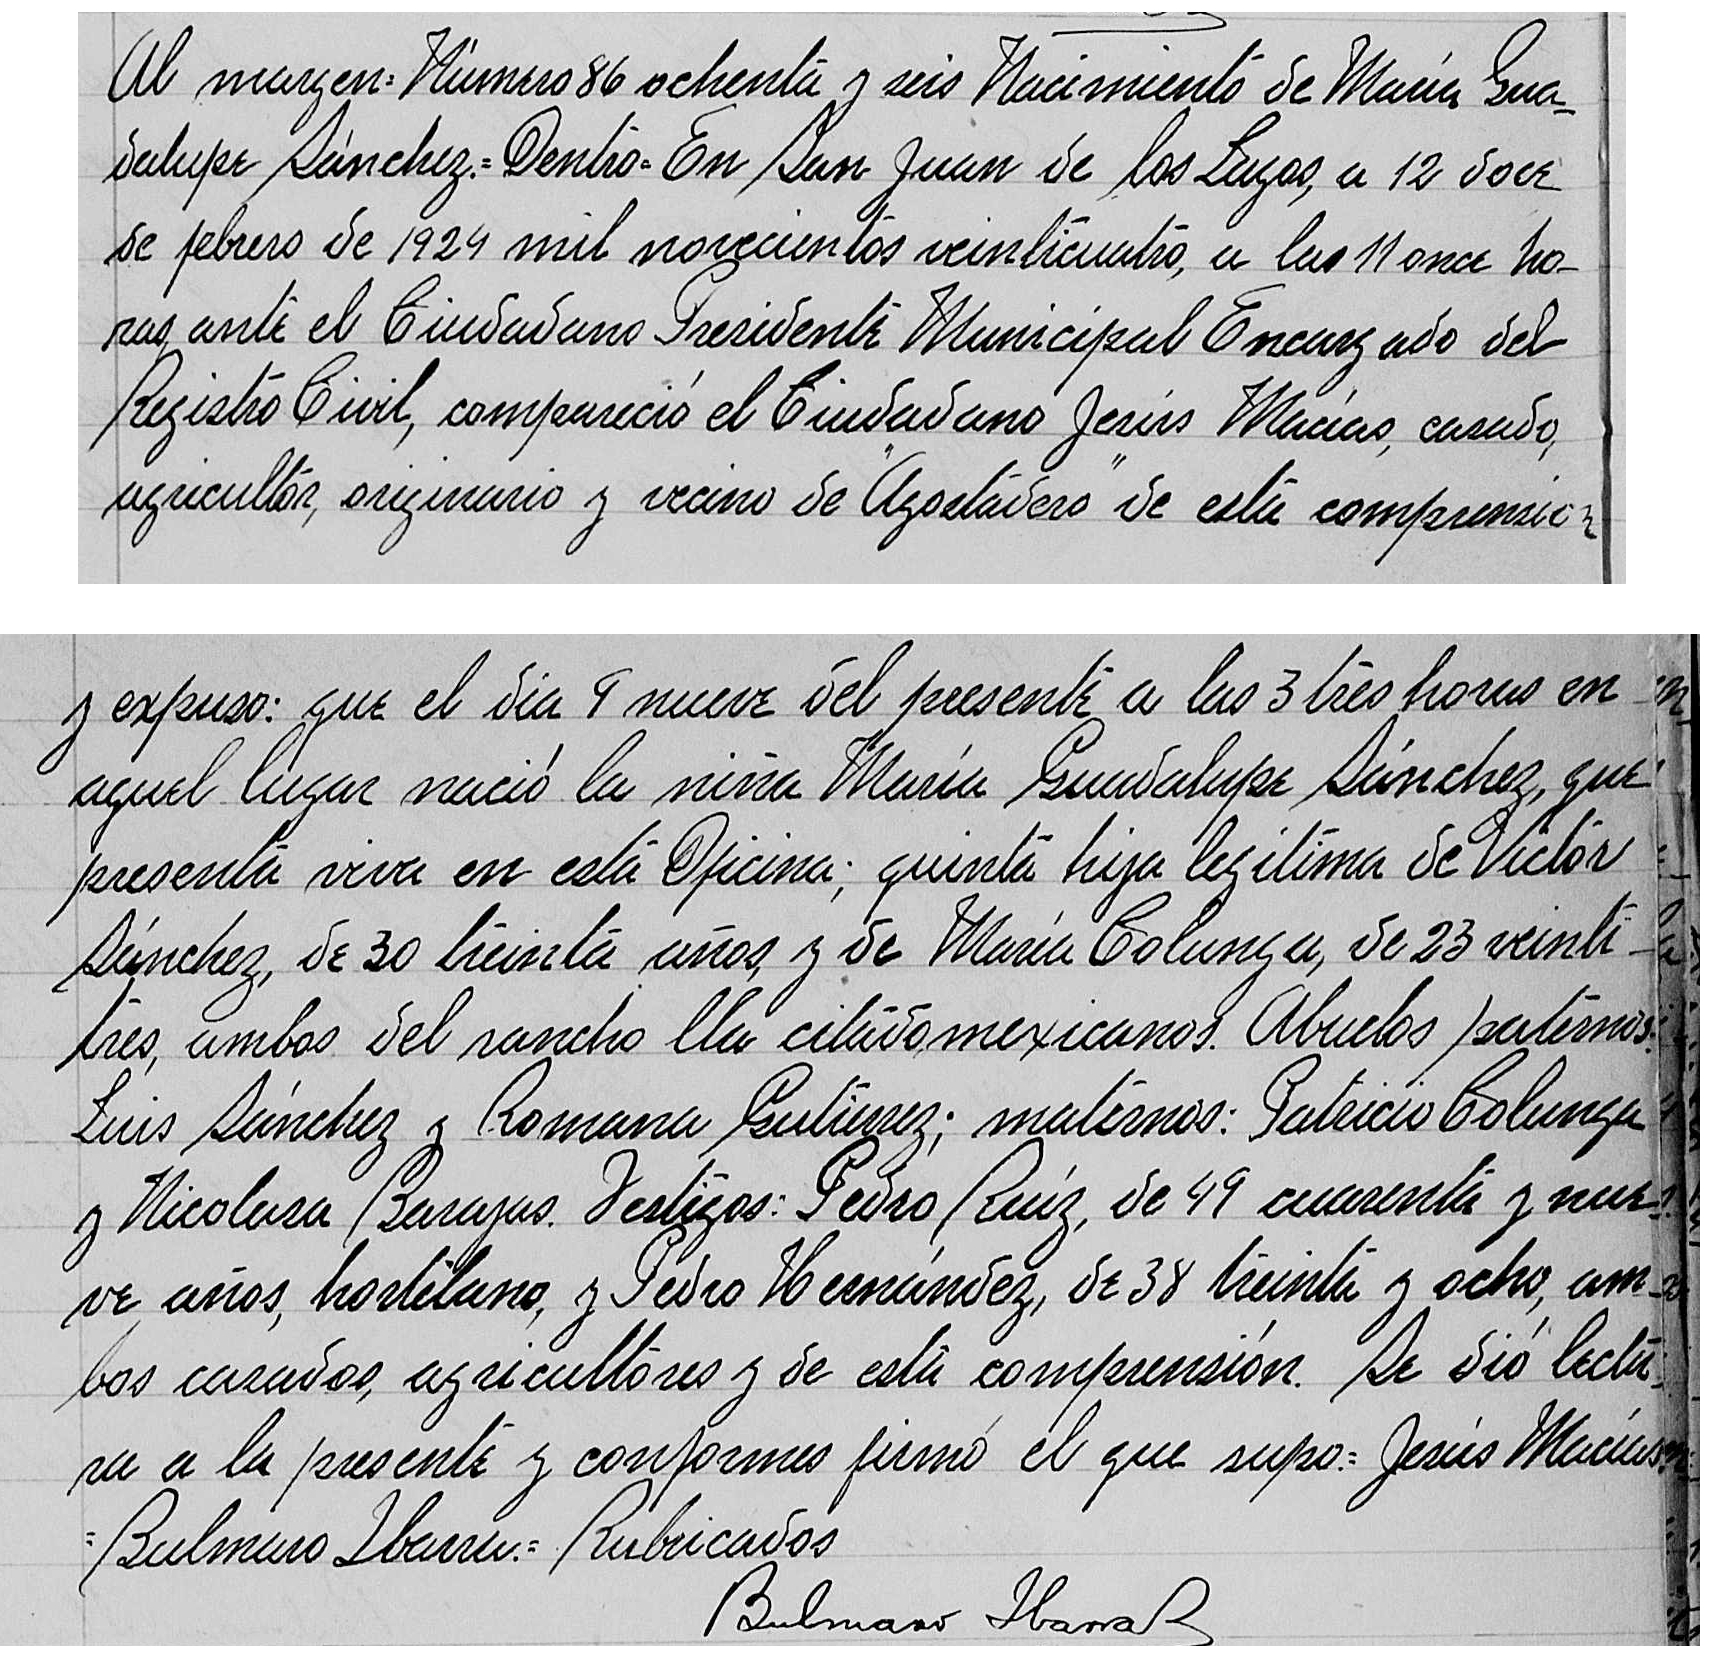 Al margen= Número 86 ochenta y seis Nacimiento de María Gua-
dalupe Sánchez.= Dentro= En San Juan de los Lagos, a 12 doce
de febrero de 1924 mil novecientos veinticuatro, a las 11 once ho-
ras, ante el Ciudadano Presidente Municipal Encargado del
Registro Civil, compareció el Ciudadano Jesús Macías, casado,
agricultor, originario y vecino de "Agostadero" de esta comprensión
y expuso: que el dia 9 nueve del presente a las 3 tres horas en
aquel lugar nació la niña María Guadalupe Sánchez, que
presenta viva en esta Oficina; quinta hija legitima de Victor
Sánchez, de 30 treinta años, y de María Colunga, de 23 veinti-
tres, ambos del rancho lla citado, mexicanos. Abuelos paternos:
Luis Sánchez y Romana Gutierrez; maternos: Patricio Colunga
y Nicolasa Barajas. Testigos: Pedro Ruíz, de 49 cuarenta y nue-
ve años, hortelano, y Pedro Hernández, de 38 treinta y ocho, am-
bos casados, agricultores y de esta comprensión. Se dió lectu-
ra a la presente y conformes firmó el que supo.= Jesús Macías
= Bulmaro Ibarra.= Rubricados
Bulmaro Ibarra R